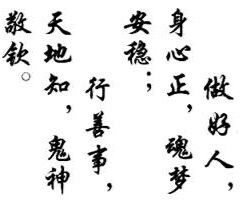 做好人，
身心正，魂梦
安稳；
行善事，
天地知，鬼神
敬钦。